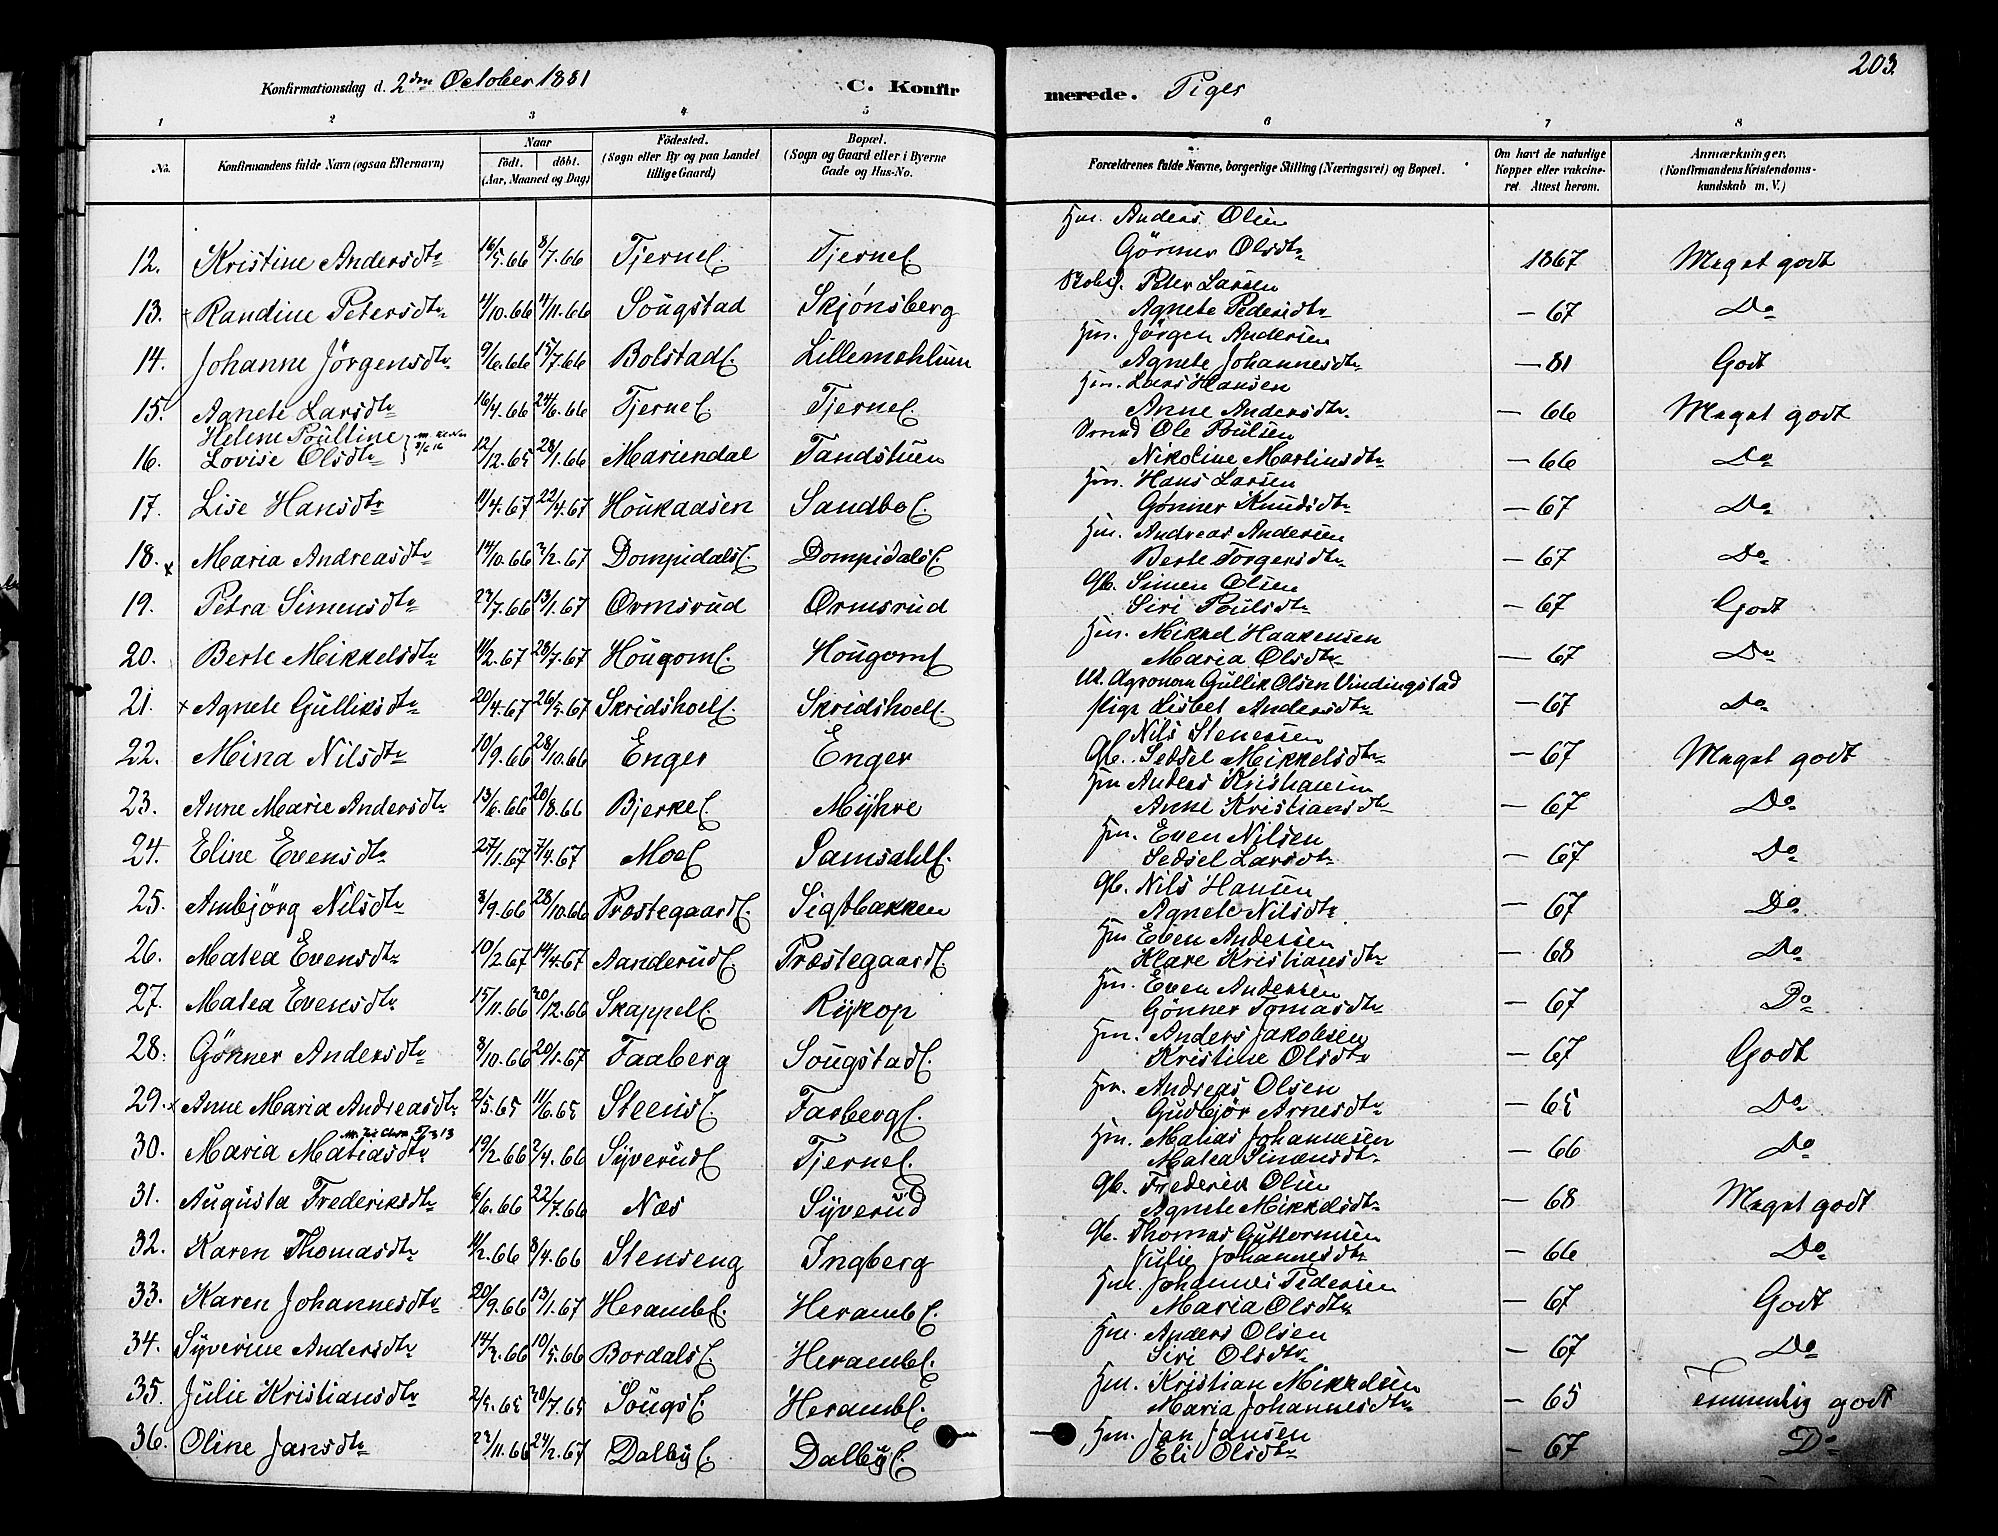 203.
Konfirmationsdag d. 2den October 1881 C. Konfir merede. Piger
1 2 3 4 5 6 7 8
No. Konfirmandens fulde Navn (ogsaa Efternavn) Naar födt. döbt. (Aar, Maaned og Dag) Födested. (Sogn eller By og paa Landet tillige Gaard) Bopæl. (Sogn og Gaard eller i Byerne Gade og Hus-No. Forældrenes fulde Navne, borgerlige Stilling (Næringsvei) og Bopæl. Om havt de naturlige Kopper eller vakcineret. Attest herom. Anmærkninger. (Konfirmandens Kristendomskundskab m. V.)
Hm. Anders Olsen
12. Kristine Andersdtr 16/5.66 8/7.66 Tjerne Tjerne Gönner Olsdtr 1867 Meget godt
Peter Larsen
13. x Randine Petersdtr 4/10.66 4/11.66 Sougstad Skjönsberg Agnete Pedersdtr - 67 Do
Hm. Jörgen Andersen
14. Johanne Jörgensdtr 9/6.66 15/7.66 Bolstad Lillemehlum Agnete Johannesdtr - 81 Godt
Hm. Lars Hansen
15. Agnete Larsdtr 16/4.66 24/6.66 Tjerne Tjerne Anne Andersdtr. - 66 Meget godt
Helene Poulline Ole Poulsen
16. Lovise Olsdtr 12/12.65 28/1.66 Mariendal Tandstuen Nikoline Martinsdtr - 66 Do
Hm. Hans Larsen
17. Lise Hansdtr 11/4.67 22/4.67 Houkaasen Sandbo Gönner Knudsdtr - 67 Do
Hm. Andreas Andersen
18. x Maria Andreasdtr 14/10.66 2/2.67 Dompidals Dompidals Berte Torgersdtr - 67 Do
Gb. Simen Olsen
19. Petra Simensdtr 27/7.66 13/1.67 Ormsrud Ormsrud Siri Poulsdtr - 67 Godt
Hm. Mikkel Haakensen
20. Berte Mikkelsdtr 11/2.67 28/7.67 Hougom Hougom Maria Olsdtr - 67 Do
Ul. Agronom Gullik Olsen Vindingstad
21. x Agnete Gulliksdtr 20/4.67 26/5.67 Skridshoel Skridshoel Pige Lisbet Andersdtr - 67 Do
Nils Stenersen
22. Mina Nilsdtr 10/9.66 28/10.66 Enger Enger Gb. Sedsel Mikkelsdtr - 67 Meget godt
Hm Anders Kristiansen
23. Anne Marie Andersdtr 13/6.66 20/8.66 Bjerke Myhre Anne Kristiansdtr - 67 Do
Hm. Even Nilsen
24. Eline Evensdtr 27/1.67 7/4.67 Moe Samsahl Sedsel Larsdtr - 67 Do
Gb. Nils Hansen
25. Ambjörg Nilsdtr 8/9.66 28/10.66 Præstegaard Sigtbakken Agnete Nilsdtr - 67 Do
Hm Even Andersen
26. Matea Evensdtr 10/2.67 14/4.67 Aanderud Præstegaard Klare Kristiansdtr - 68 Do
Hm. Even Andersen
27. Matea Evensdtr 15/11.66 20/12.66 Skappel Rykop Gönner Tomasdtr - 67 Do
Hm. Anders Jakobsen
28. Gönner Andersdtr 8/10.66 20/1.67 Faaberg Sougstad Kristine Olsdtr - 67 Godt
Hm. Andreas Olsen
29. x Anne Maria Andreasdtr 2/5.65 11/6.65 Steens Faaberg Gudbjör Arnesdtr - 65 Do
Hm. Matias Johannesen
30. Maria Matiasdtr 19/2.66 2/4.66 Syverud Tjerne Matea Simensdtr - 66 Do
Gb. Frederik Olsen
31. Augusta Frederiksdtr 6/6.66 22/7.66 Næs Syverud Agnete Mikkelsdtr - 68 Meget godt
Gb. Thomas Guttormsen
32. Karen Thomasdtr 11/2.66 8/4.66 Stenseng Ingberg Julie Johannesdtr - 66 Do
Hm Johannes Pedersen
33. Karen Johannesdtr 20/9.66 13/1.67 Heramb Heramb Maria Olsdtr - 67 Godt
Hm. Anders Olsen
34. Syverine Andersdtr 14/3.66 10/5.66 Bordals Heramb Siri Olsdtr - 67 Do
Hm. Kristian Mikkelsen
35. Julie Kristiansdtr 2/5.65 30/7.65 Sougs Heramb Maria Johannesdtr - 65 Temmelig godt
Hm. Jan Jansen
36. Oline Jansdtr 23/11.66 24/2.67 Dalby Dalby Eli Olsdtr - 67 Do